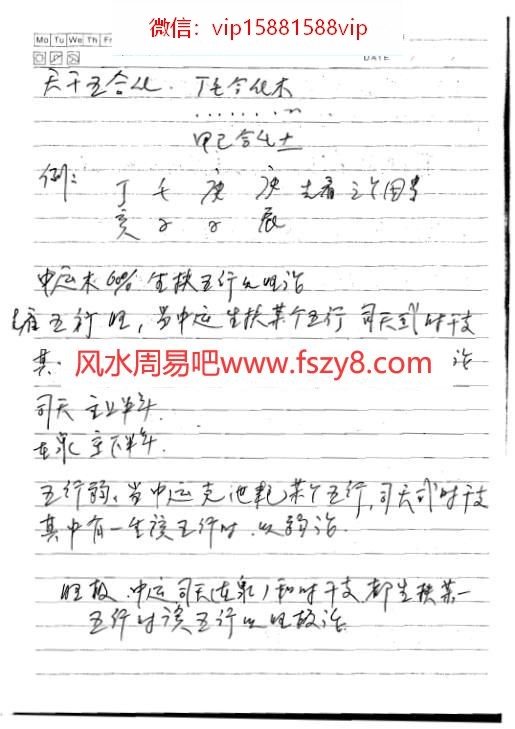 微信：vip15881588vip
Mo Tu We Th Fr
DATE
天干五合化. 丁壬合化木
甲己合化土
例：
丁 壬 庚 庚 先看三个因
亥 子 子 辰
中运木60% 生扶五行以旺论
五行旺，当中运生扶某个五行 司天或时干支
其 论
风水周易吧www.fszy8.com
司天 主上半年.
在泉 主下半年.
五行弱、当中运克泄耗某个五行,司天或时干支
其中有一生该五行时.以弱论.
旺极.中运司天(在泉)和时干支都生扶某一
五行时该五行以旺极论.